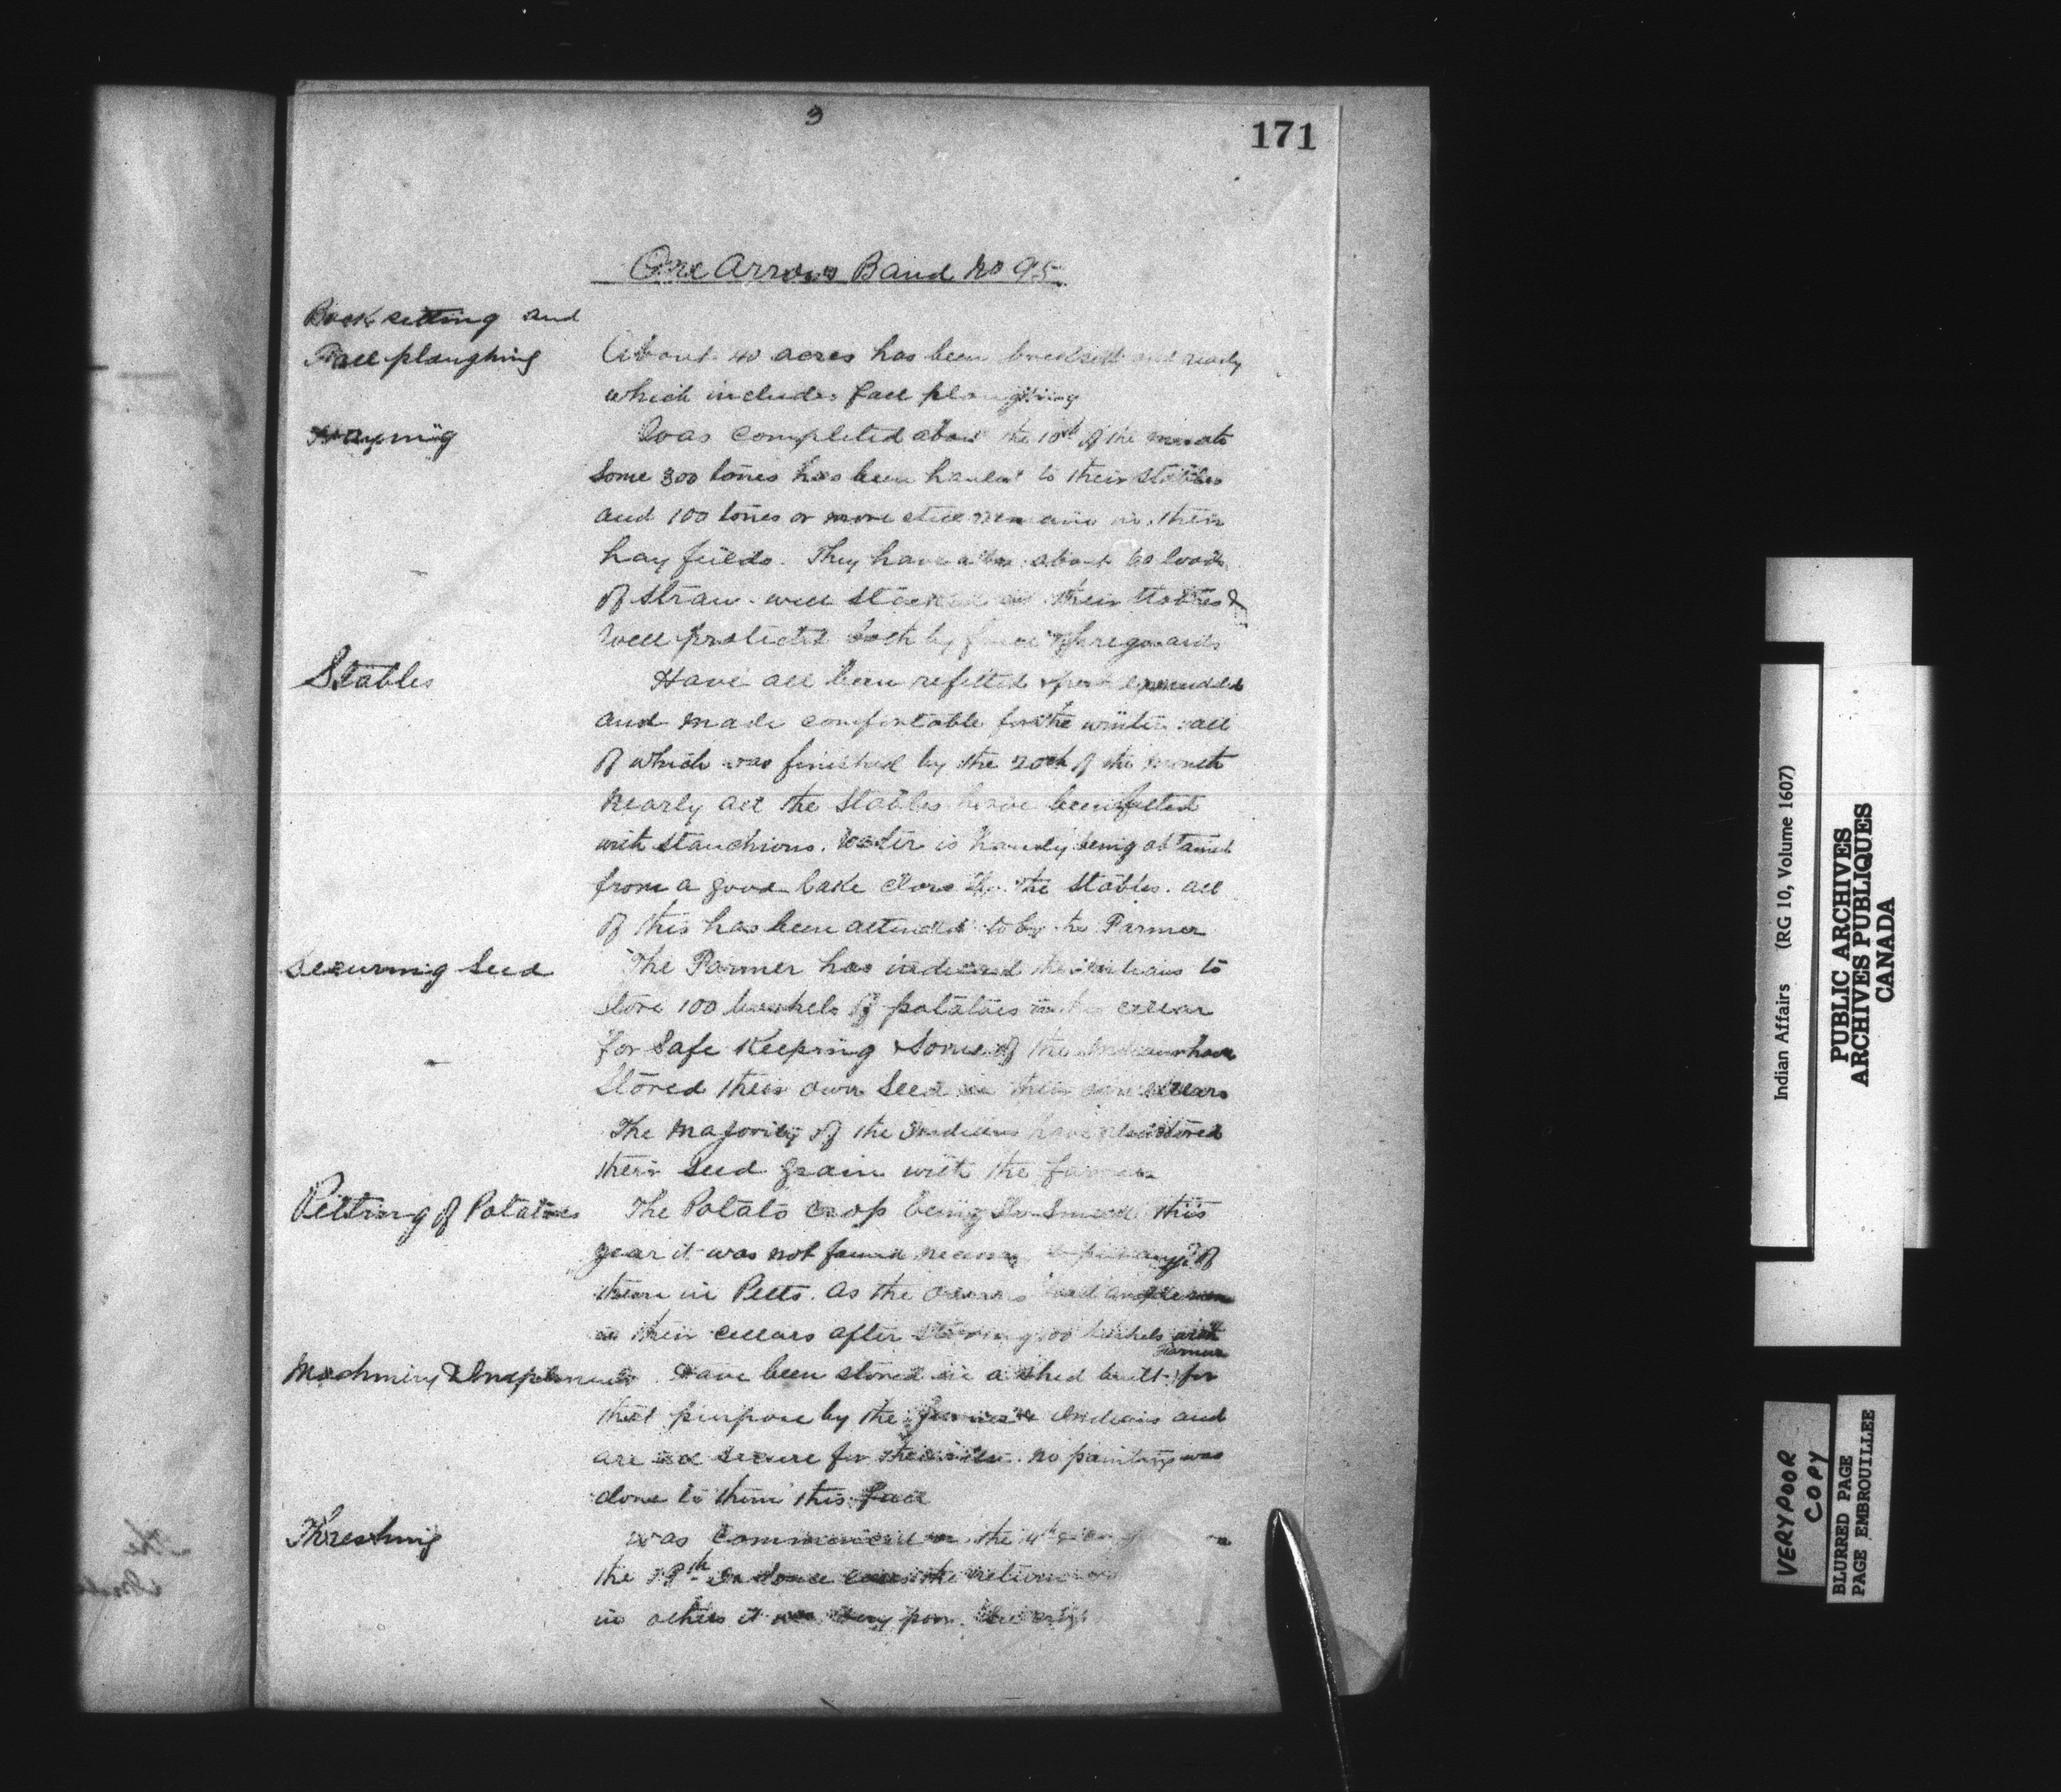 3
171
One Arrows Band No 95
Backsetting and
Fall ploughing
About 40 acres has been backsett and ready
which includes fall ploughing
Haying
Was completed about the 10th of the month
Some 300 tones has been hauled to their Stables
and 100 tones or more still remains in their
hay fields. They have also about 60 loads
of straw well stacked at their Stables &
well protected both by fence & fireguards
Stables
Have all been refitted
and made comfortable for the winter all
of which was finished by the 20th of the month
Nearly all the Stables have been fitted
with stanchions. Water is handy being obtained
from a good lake close to the Stables. all
of this has been attended to by the Farmer
Securing Seed
The Farmer has induced the Indians to
Store 100 bushels of potatoes in his cellar
for Safe Keeping & Some of the Indians have
Stored their own Seed in their own cellars
The Majority of the Indians have also stored
their seed grain with the farmer
Pitting of Potatoes
The Potato crop being so small this
year it was not found necessary to put any of
them in Pitts. As the
in their cellars after storing 100 bushels with
Farmer
Machinery & Implements
Have been stored in a shed built for
that purpose by the farmer & Indians and
are all secure for the winter. no painting was
done to them this fall
Threshing
was commenced on the 4th
the 19th In some cases the
in others it was very poor.
Indian Affairs (RG 10, Volume 1607)
PUBLIC ARCHIVES
ARCHIVES PUBLIQUES
CANADA
VERY POOR
COPY
BLURRED PAGE
PAGE EMBROUILLEE